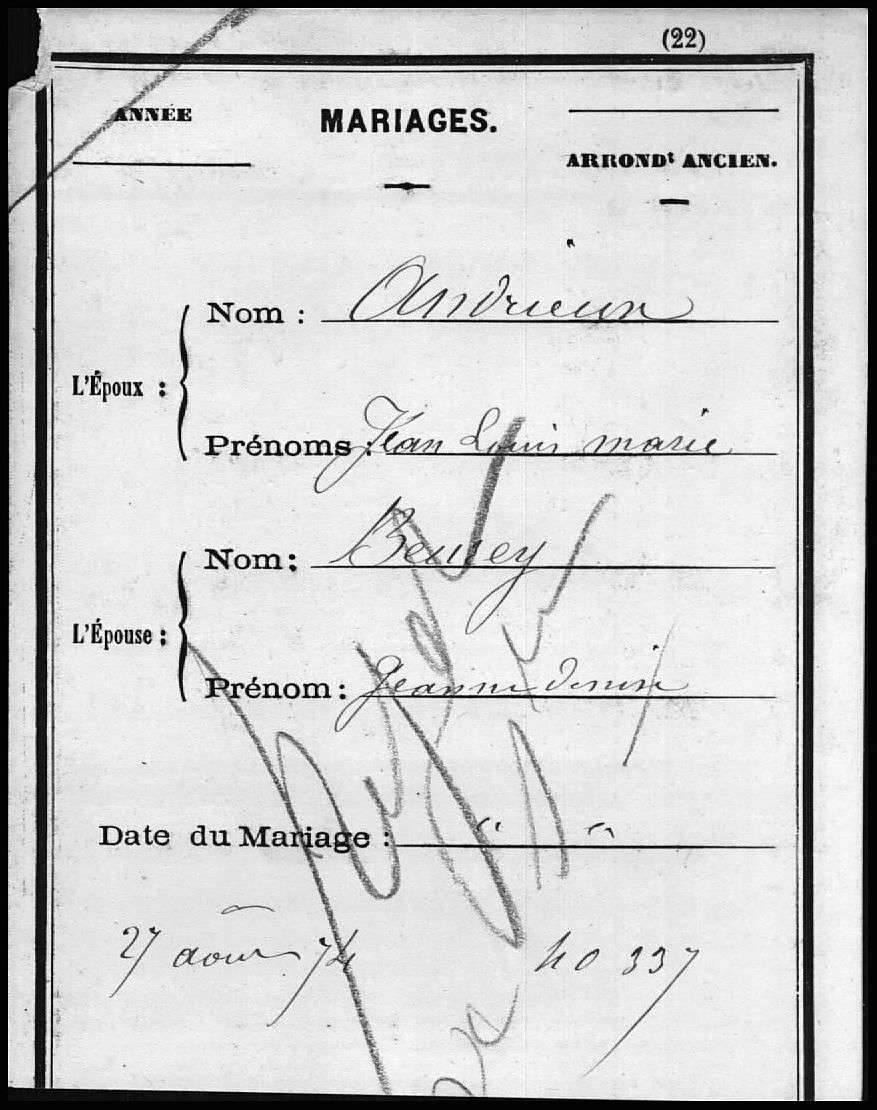 (22)
ANNÉE
MARIAGES.
ARRONDt ANCIEN.
L'Époux :
Nom : Andrieux
Prénoms : Jean Louis marie
L'Épouse :
Nom : Beusey
Prénom : Jeanne denise
Date du Mariage : " "
27 août 74 no 337